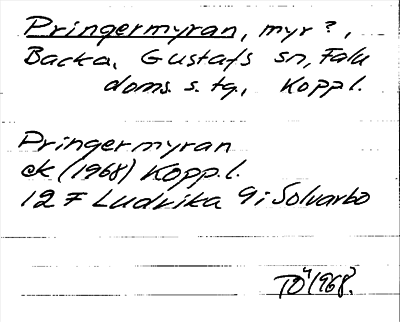 Pringermyran, myr?,
Backa, Gustafs sn, Falu
doms. s. tg., Koppl.
Pringermyran
ek (1968) Kopp.l.
12 F Ludvika 9i Solvarbo
TÖ 1968.